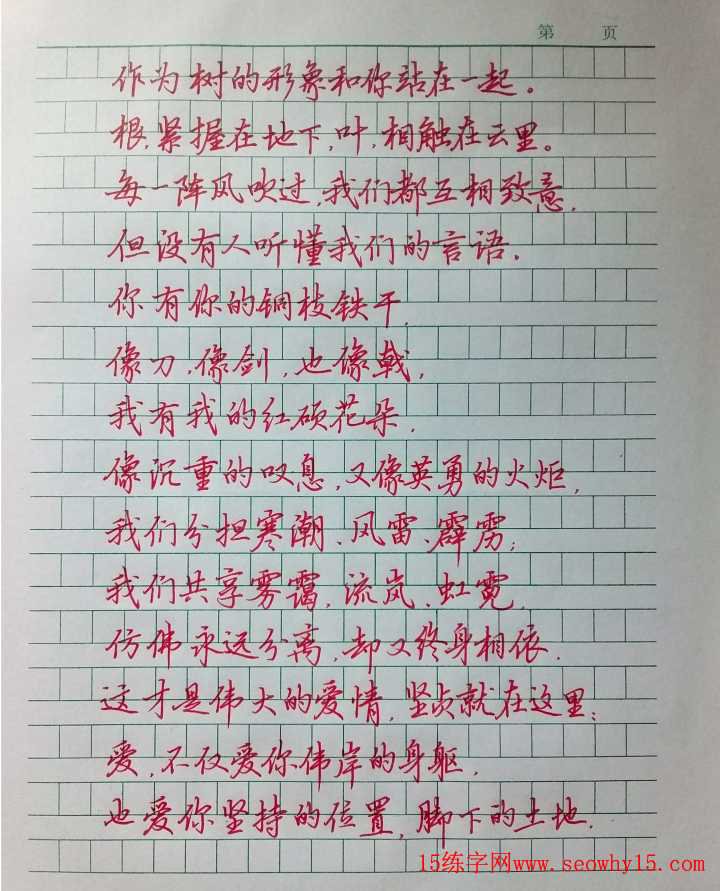 第 页
作为树的形象和你站在一起。
根,紧握在地下,叶,相触在云里。
每一阵风吹过,我们都互相致意,
但没有人听懂我们的言语.
你有你的铜枝铁干,
像刀,像剑,也像戟,
我有我的红硕花朵,
像沉重的叹息,又像英勇的火炬,
我们分担寒潮、风雷、霹雳;
我们共享雾霭,流岚,虹霓,
仿佛永远分离,却又终身相依.
这才是伟大的爱情,坚贞就在这里;
爱,不仅爱你伟岸的身躯,
也爱你坚持的位置,脚下的土地.
15练字网www.seowhy15.com